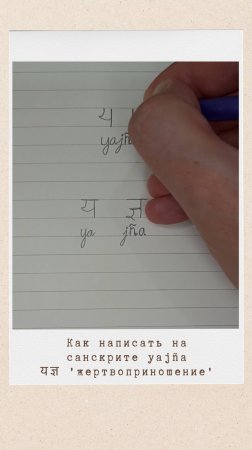 य
yajñ
य ज्ञ
ya jña
Как написать на
санскрите yajña
यज्ञ 'жертвоприношение'